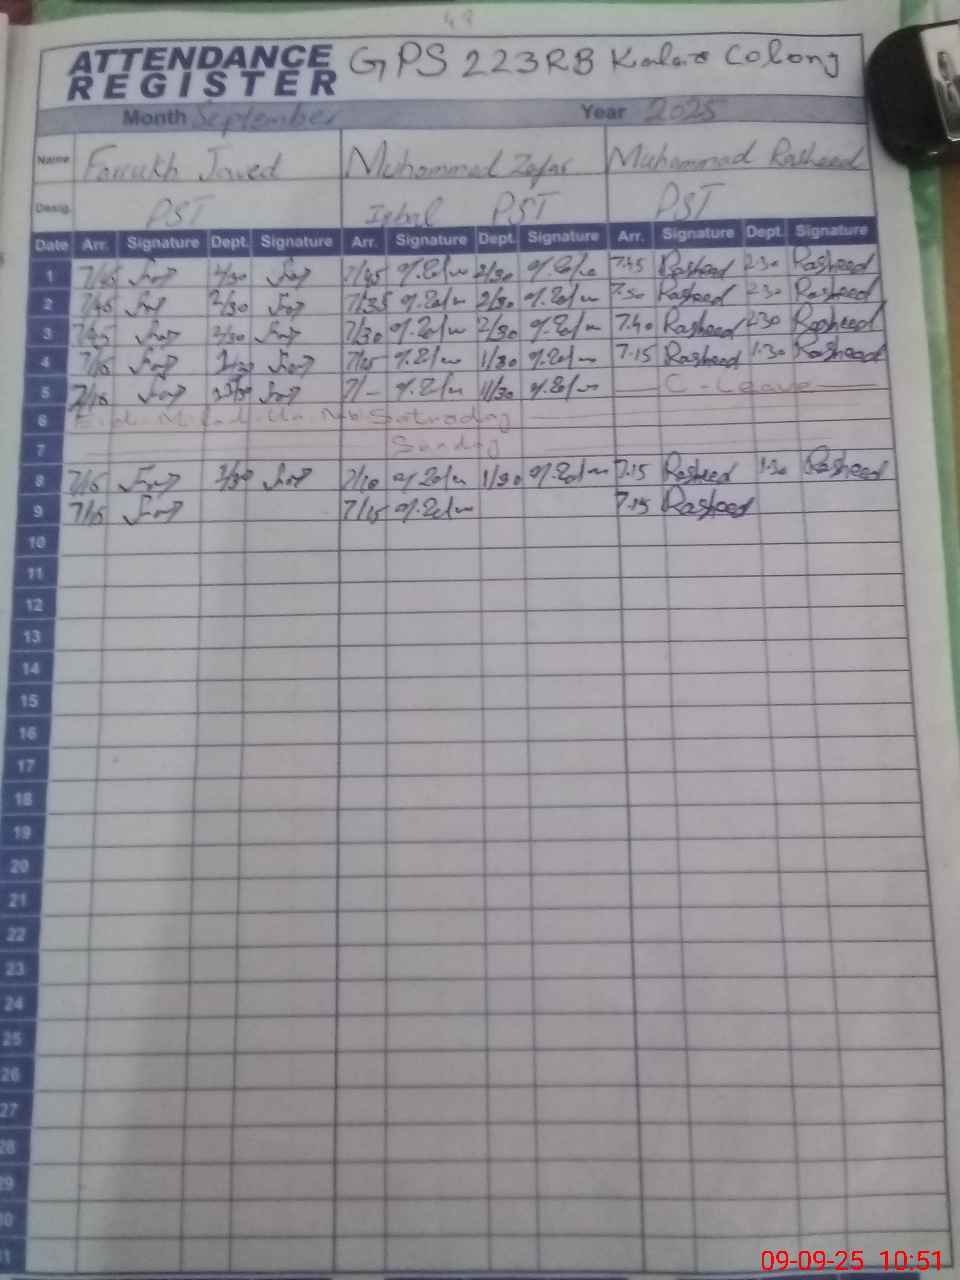 48
ATTENDANCE REGISTER GPS 223RB Kalar Colony
Month September Year 2025
Name Farrukh Javed Muhammad Zafar Muhammad Rasheed
Desig. PST Iqbal PST PST
Date Arr. Signature Dept. Signature Arr. Signature Dept. Signature Arr. Signature Dept. Signature
1 7/45 2/30 7/45 2/30 7.45 Rasheed 2.30 Rasheed
2 7/45 2/30 7/35 2/30 7.50 Rasheed 2.30 Rasheed
3 7/45 2/30 7/30 2/30 7.40 Rasheed 2.30 Rasheed
4 7/15 1/30 7/15 1/30 7.15 Rasheed 1.30 Rasheed
5 7/- 11/30 C-Leave
6 Eid Milad-Un-Nbi Saturaday
7 Sunday
8 7/15 1/30 7/10 1/30 7.15 Rasheed 1.30 Rasheed
9 7/15 7/15 7.15 Rasheed
10
11
12
13
14
15
16
17
18
19
20
21
22
23
24
25
26
27
28
29
30
31
09-09-25 10:51